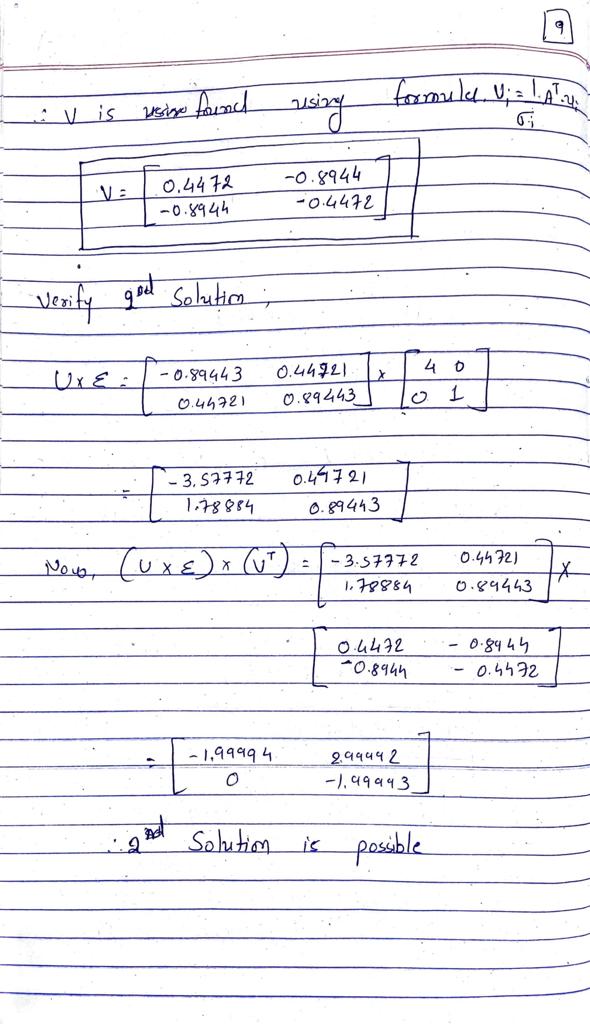 9
∴ V is found using formula. Vᵢ = 1/σᵢ . Aᵀ.uᵢ
V = [ 0.4472 -0.8944
-0.8944 -0.4472 ]
Verify 2nd Solution ;
U x Σ = [ -0.89443 0.44721 ] x [ 4 0 ]
[ 0.44721 0.89443 ] [ 0 1 ]
= [ -3.57772 0.44721 ]
[ 1.78884 0.89443 ]
Now, (U x Σ) x (Vᵀ) = [ -3.57772 0.44721 ] x
[ 1.78884 0.89443 ]
[ 0.4472 - 0.8944 ]
[ -0.8944 - 0.4472 ]
= [ -1.99994 2.99992 ]
[ 0 -1.99993 ]
∴ 2nd Solution is possible